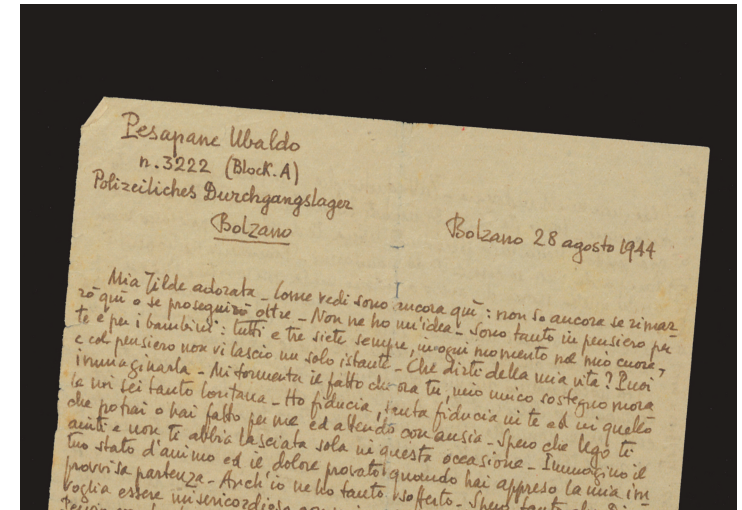 Pesapane Ubaldo
n. 3222 (Block. A)
Polizeiliches Durchgangslager
Bolzano
Bolzano 28 agosto 1944
Mia Tilde adorata - Come vedi sono ancora qui: non so ancora se rimar-
rò qui o se proseguirò oltre - Non ne ho un'idea - Sono tanto in pensiero per
te e per i bambini: tutti e tre siete sempre, in ogni momento nel mio cuore,
e col pensiero non vi lascio un solo istante - Che dirti della mia vita? Puoi
immaginarla - Mi tormenta il fatto che ora tu, mio unico sostegno mora
le mi sei tanto lontana - Ho fiducia, tanta fiducia in te ed in quello
che potrai o hai fatto per me ed attendo con ansia - Spero che Ugo ti
aiuti e non ti abbia lasciata sola in questa occasione - Immagino il
tuo stato d'animo ed il dolore provato quando hai appreso la mia im
provvisa partenza - Anch'io ne ho tanto sofferto - Spero tanto che
voglia essere misericordioso